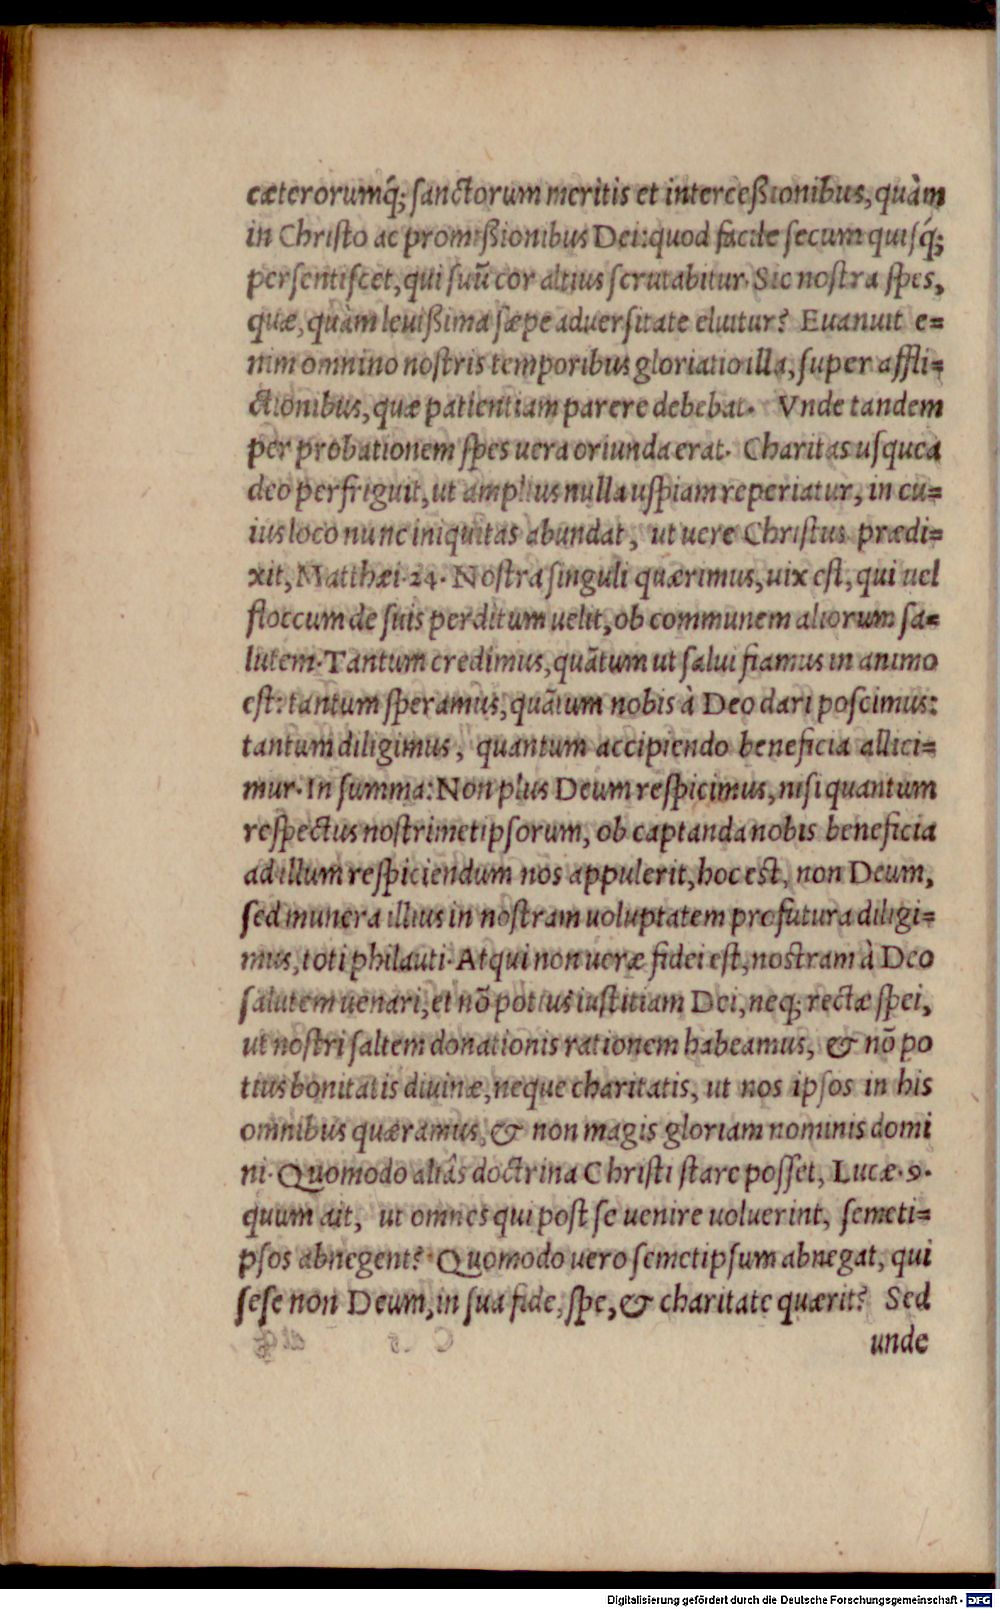 cæterorumq́; sanctorum meritis et interceßionibus, quàm
in Christo ac promißionibus Dei: quod facile secum quisq́;
persentiscet, qui suũ cor altius scrutabitur. Sic nostra spes,
quæ, quàm leuißima sæpe aduersitate eluitur? Euanuit e=
nim omnino nostris temporibus gloriatio illa, super affli=
ctionibus, quæ patientiam parere debebat. Vnde tandem
per probationem spes uera oriunda erat. Charitas usquea
deo perfriguit, ut amplius nulla uspiam reperiatur, in cu=
ius loco nunc iniquitas abundat, ut uere Christus prædi=
xit, Matthæi. 24. Nostra singuli quærimus, uix est, qui uel
floccum de suis perditum uelit, ob communem aliorum sa=
lutem. Tantum credimus, quãtum ut salui fiamus in animo
est: tantum speramus, quãtum nobis à Deo dari poscimus:
tantum diligimus, quantum accipiendo beneficia allici=
mur. In summa: Non plus Deum respicimus, nisi quantum
respectus nostrimetipsorum, ob captanda nobis beneficia
ad illum respiciendum nos appulerit, hoc est, non Deum,
sed munera illius in nostram uoluptatem profutura diligi=
mus, toti philauti. Atqui non ueræ fidei est, nostram à Deo
salutem uenari, et nõ potius iustitiam Dei, neq; rectæ spei,
ut nostri saltem donationis rationem habeamus, & nõ po
tius bonitatis diuinæ, neque charitatis, ut nos ipsos in his
omnibus quæramus, & non magis gloriam nominis domi
ni. Quomodo aliâs doctrina Christi stare posset, Lucæ. 9.
quum ait, ut omnes qui post se uenire uoluerint, semeti=
psos abnegent? Quomodo uero semetipsum abnegat, qui
sese non Deum, in sua fide, spe, & charitate quærit? Sed
unde
Digitalisierung gefördert durch die Deutsche Forschungsgemeinschaft - DFG